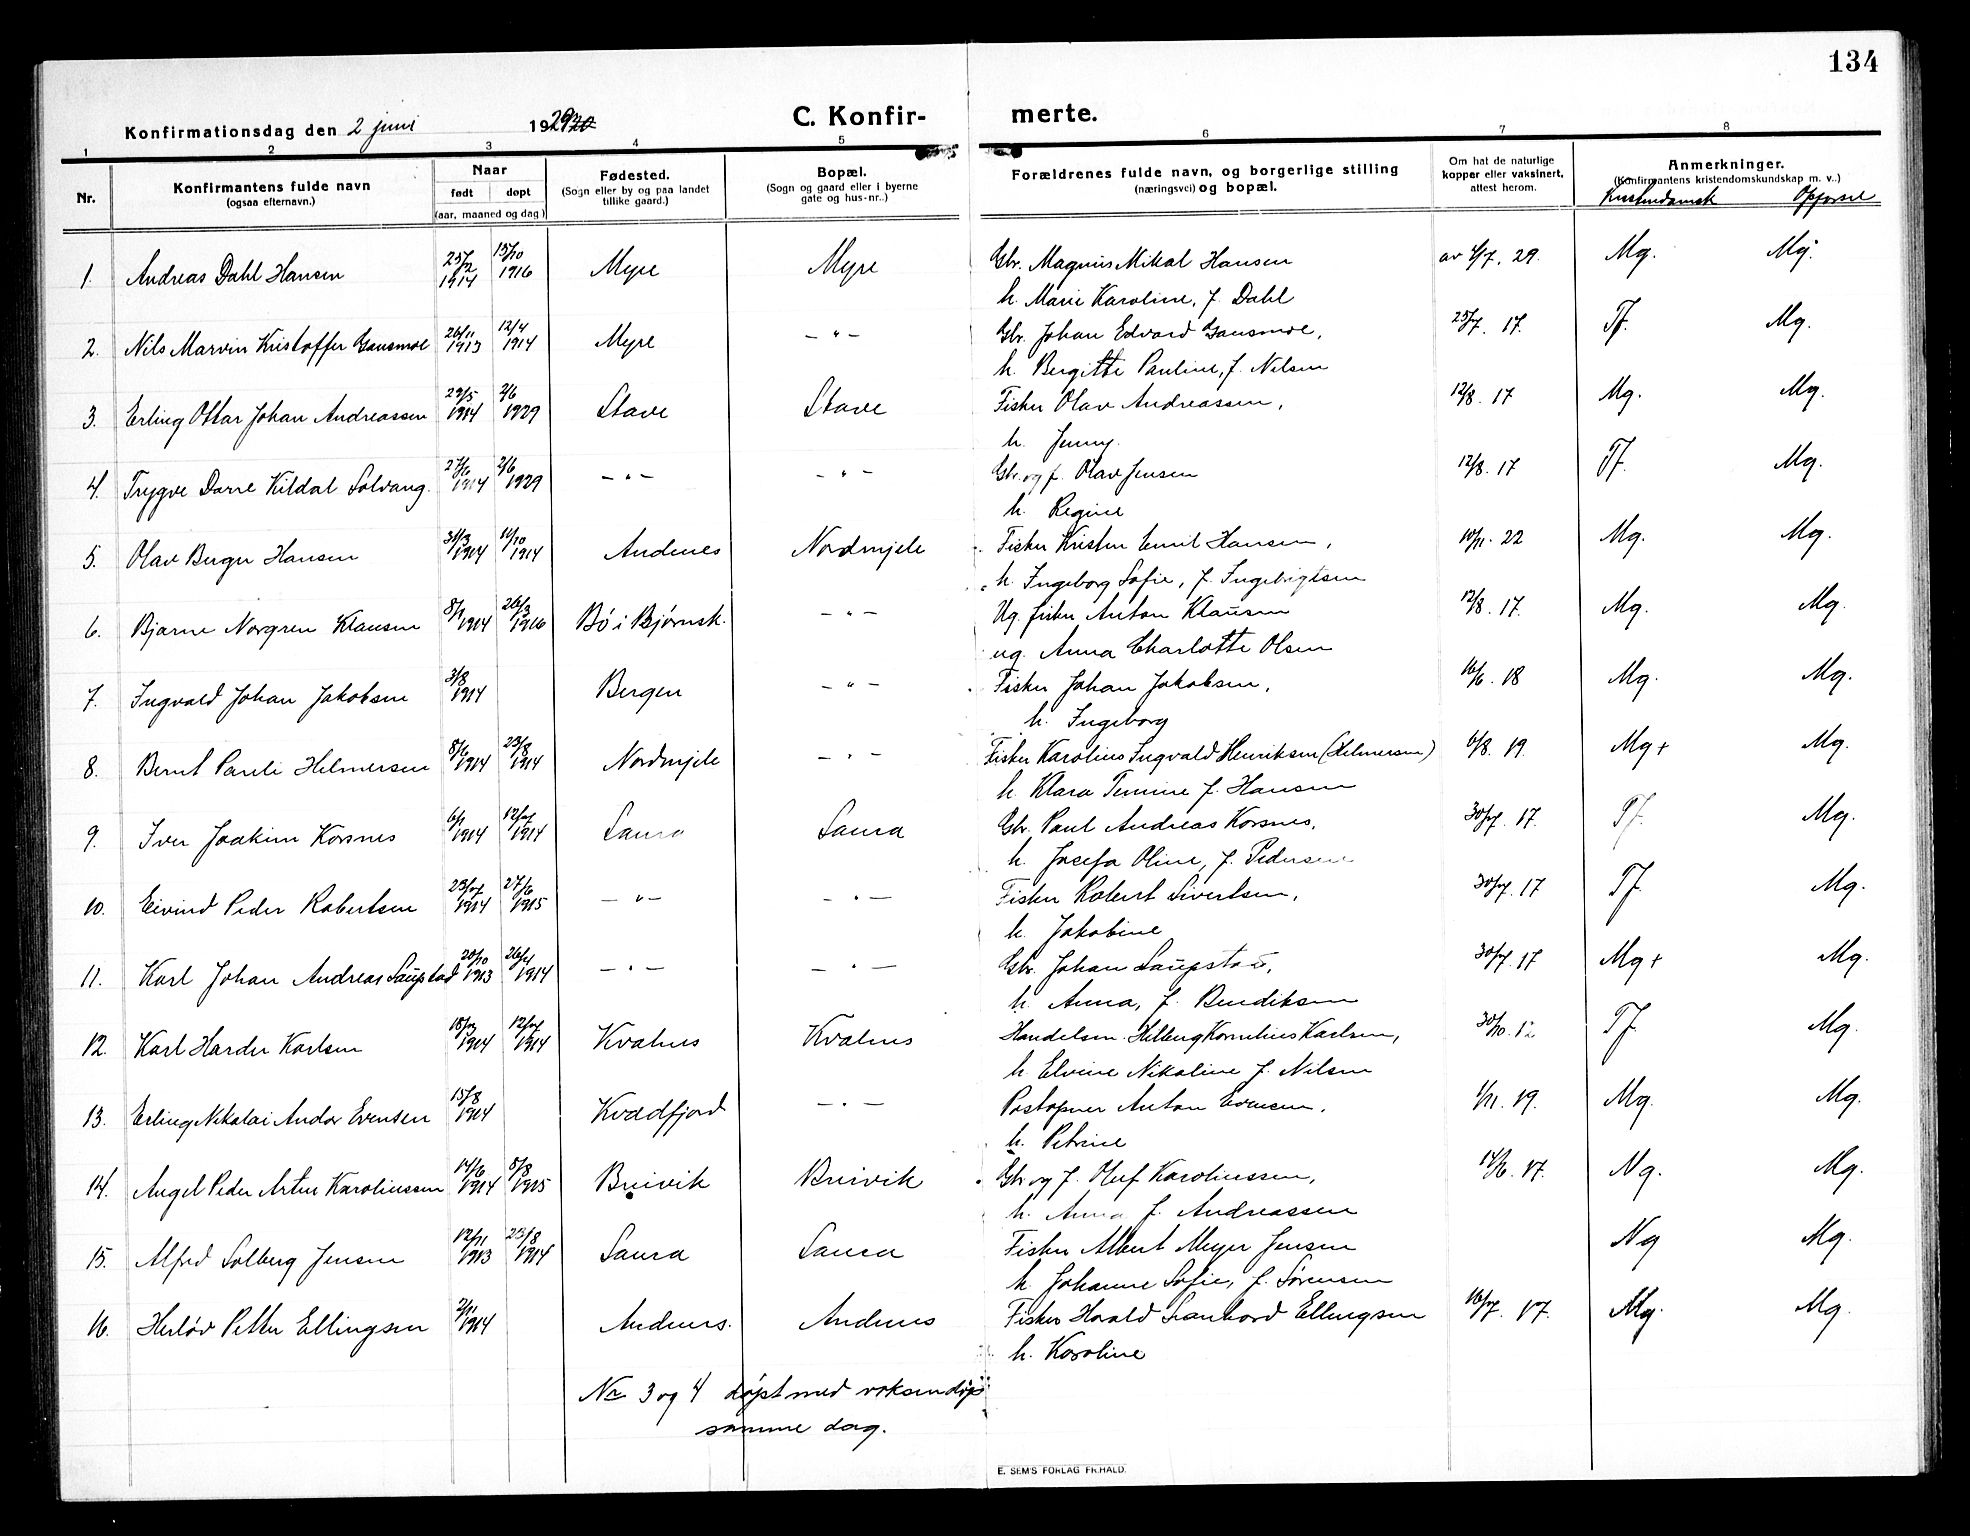 134
Konfirmationsdag den 2 juni 1929 C. Konfir- merte.
1 2 3 4 5 6 7 8
Nr. Konfirmantens fulde navn (ogsaa efternavn.) Naar født døpt (aar, maaned og dag) Fødested. (Sogn eller by og paa landet tillike gaard.) Bopæl. (Sogn og gaard eller i byerne gate og hus-nr.) Forældrenes fulde navn, og borgerlige stilling (næringsvei) og bopæl. Om hat de naturlige kopper eller vaksinert, attest herom. Anmerkninger. (Konfirmantens kristendomskundskap m. v.)
Kristendomsk Opførsel
1. Andreas Dahl Hansen 25/2 1914 15/10 1916 Myre Myre Gbr. Magnus Mikal Hansen av 4/7. 29. Mg. Mg.
h. Marie Karoline, f. Dahl
2. Nils Marvin Kristoffer Gausmoe 26/11 1913 12/4 1914 Myre - " - Gbr. Johan Edvard Gausmoe, 25/7. 17. Tf. Mg.
h. Bergitte Pauline, f. Nilsen
3. Erling Ottar Johan Andreassen 29/5 1914 2/6 1929 Stave Stave Fisker Olav Andreassen, 12/8. 17 Mg. Mg.
h. Jenny.
4. Trygve Dorre Kildal Solvang. 27/6 1914 2/6 1929 - " - - " - Gbr. og f. Olav Jensen 12/8. 17 Tf. Mg.
h. Regine
5. Olav Berger Hansen 31/3 1914 11/10 1914 Andenes Nordmjele Fisker Kristen Emil Hansen, 10/11. 22 Mg. Mg.
h. Ingeborg Sofie, f. Ingebrigtsen
6. Bjarne Norgren Klausen 8/1 1914 26/3 1916 Bø i Bjørnsk. - " - Ug. fisker Anton Klausen 12/8. 17. Mg. Mg.
ug. Anna Charlotte Olsen
7. Ingvald Johan Jakobsen 3/8 1914 Bergen - " - Fisker Johan Jakobsen, 16/6. 18 Mg. Mg.
h. Ingeborg
8. Bernt Pareli Helmersen 8/6 1914 23/8 1914 Nordmjele - " - Fisker Karolius Ingvald Henriksen (Helmersen) 6/8. 19. Mg+ Mg.
h. Klara Temine f. Hansen
9. Iver Joakim Korsnes 6/1 1914 12/7 1914 Saura Saura Gbr. Paul Andreas Korsnes, 30/7. 17. Tf. Mg.
h. Josefa Oline, f. Pedersen
10. Eivind Peder Robertsen 23/7 1914 27/6 1915 - " - - " - Fisker Robert Sivertsen, 30/7. 17 Tf. Mg.
h. Jakobine
11. Karl Johan Andreas Saupstad 20/10 1913 26/4 1914 - " - - " - Gbr. Johan Saupstad, 30/7. 17 Mg+ Mg.
h. Anna, f. Bendiksen
12. Karl Harder Karlsen 1914 12/7 1914 Kvalnes Kvalnes Handelsm. Helberg Kornelius Karlsen, 30/10. 12 Tf. Mg.
h. Elvine Nikoline f. Nilsen
13. Erling Nikolai Andor Evensen 15/8 1914 Kvædfjord - " - Postopner Anton Evensen, 1/11. 19. Mg. Mg.
h. Petrine
14. Angel Peder Artur Karoliussen 14/6 1914 8/8 1915 Breivik Breivik Gbr og f. Oluf Karoliussen, 14/6. 17. Ng. Mg.
h. Anna f. Andreassen
15. Alfred Solberg Jensen 12/11 1913 23/8 1914 Saura Saura Fisker Albert Meyer Jensen Ng Mg.
h. Johanne Sofie, f. Sørensen
16. Herløv Petter Ellingsen 2/11 1914 Andenes. Andenes Fisker Harald Leanhard Ellingsen 16/7. 17. Mg. Mg.
h. Karoline
Nr 3 og 4 døpt med voksendåp
samme dag.
E. SEM'S FORLAG FR.HALD.